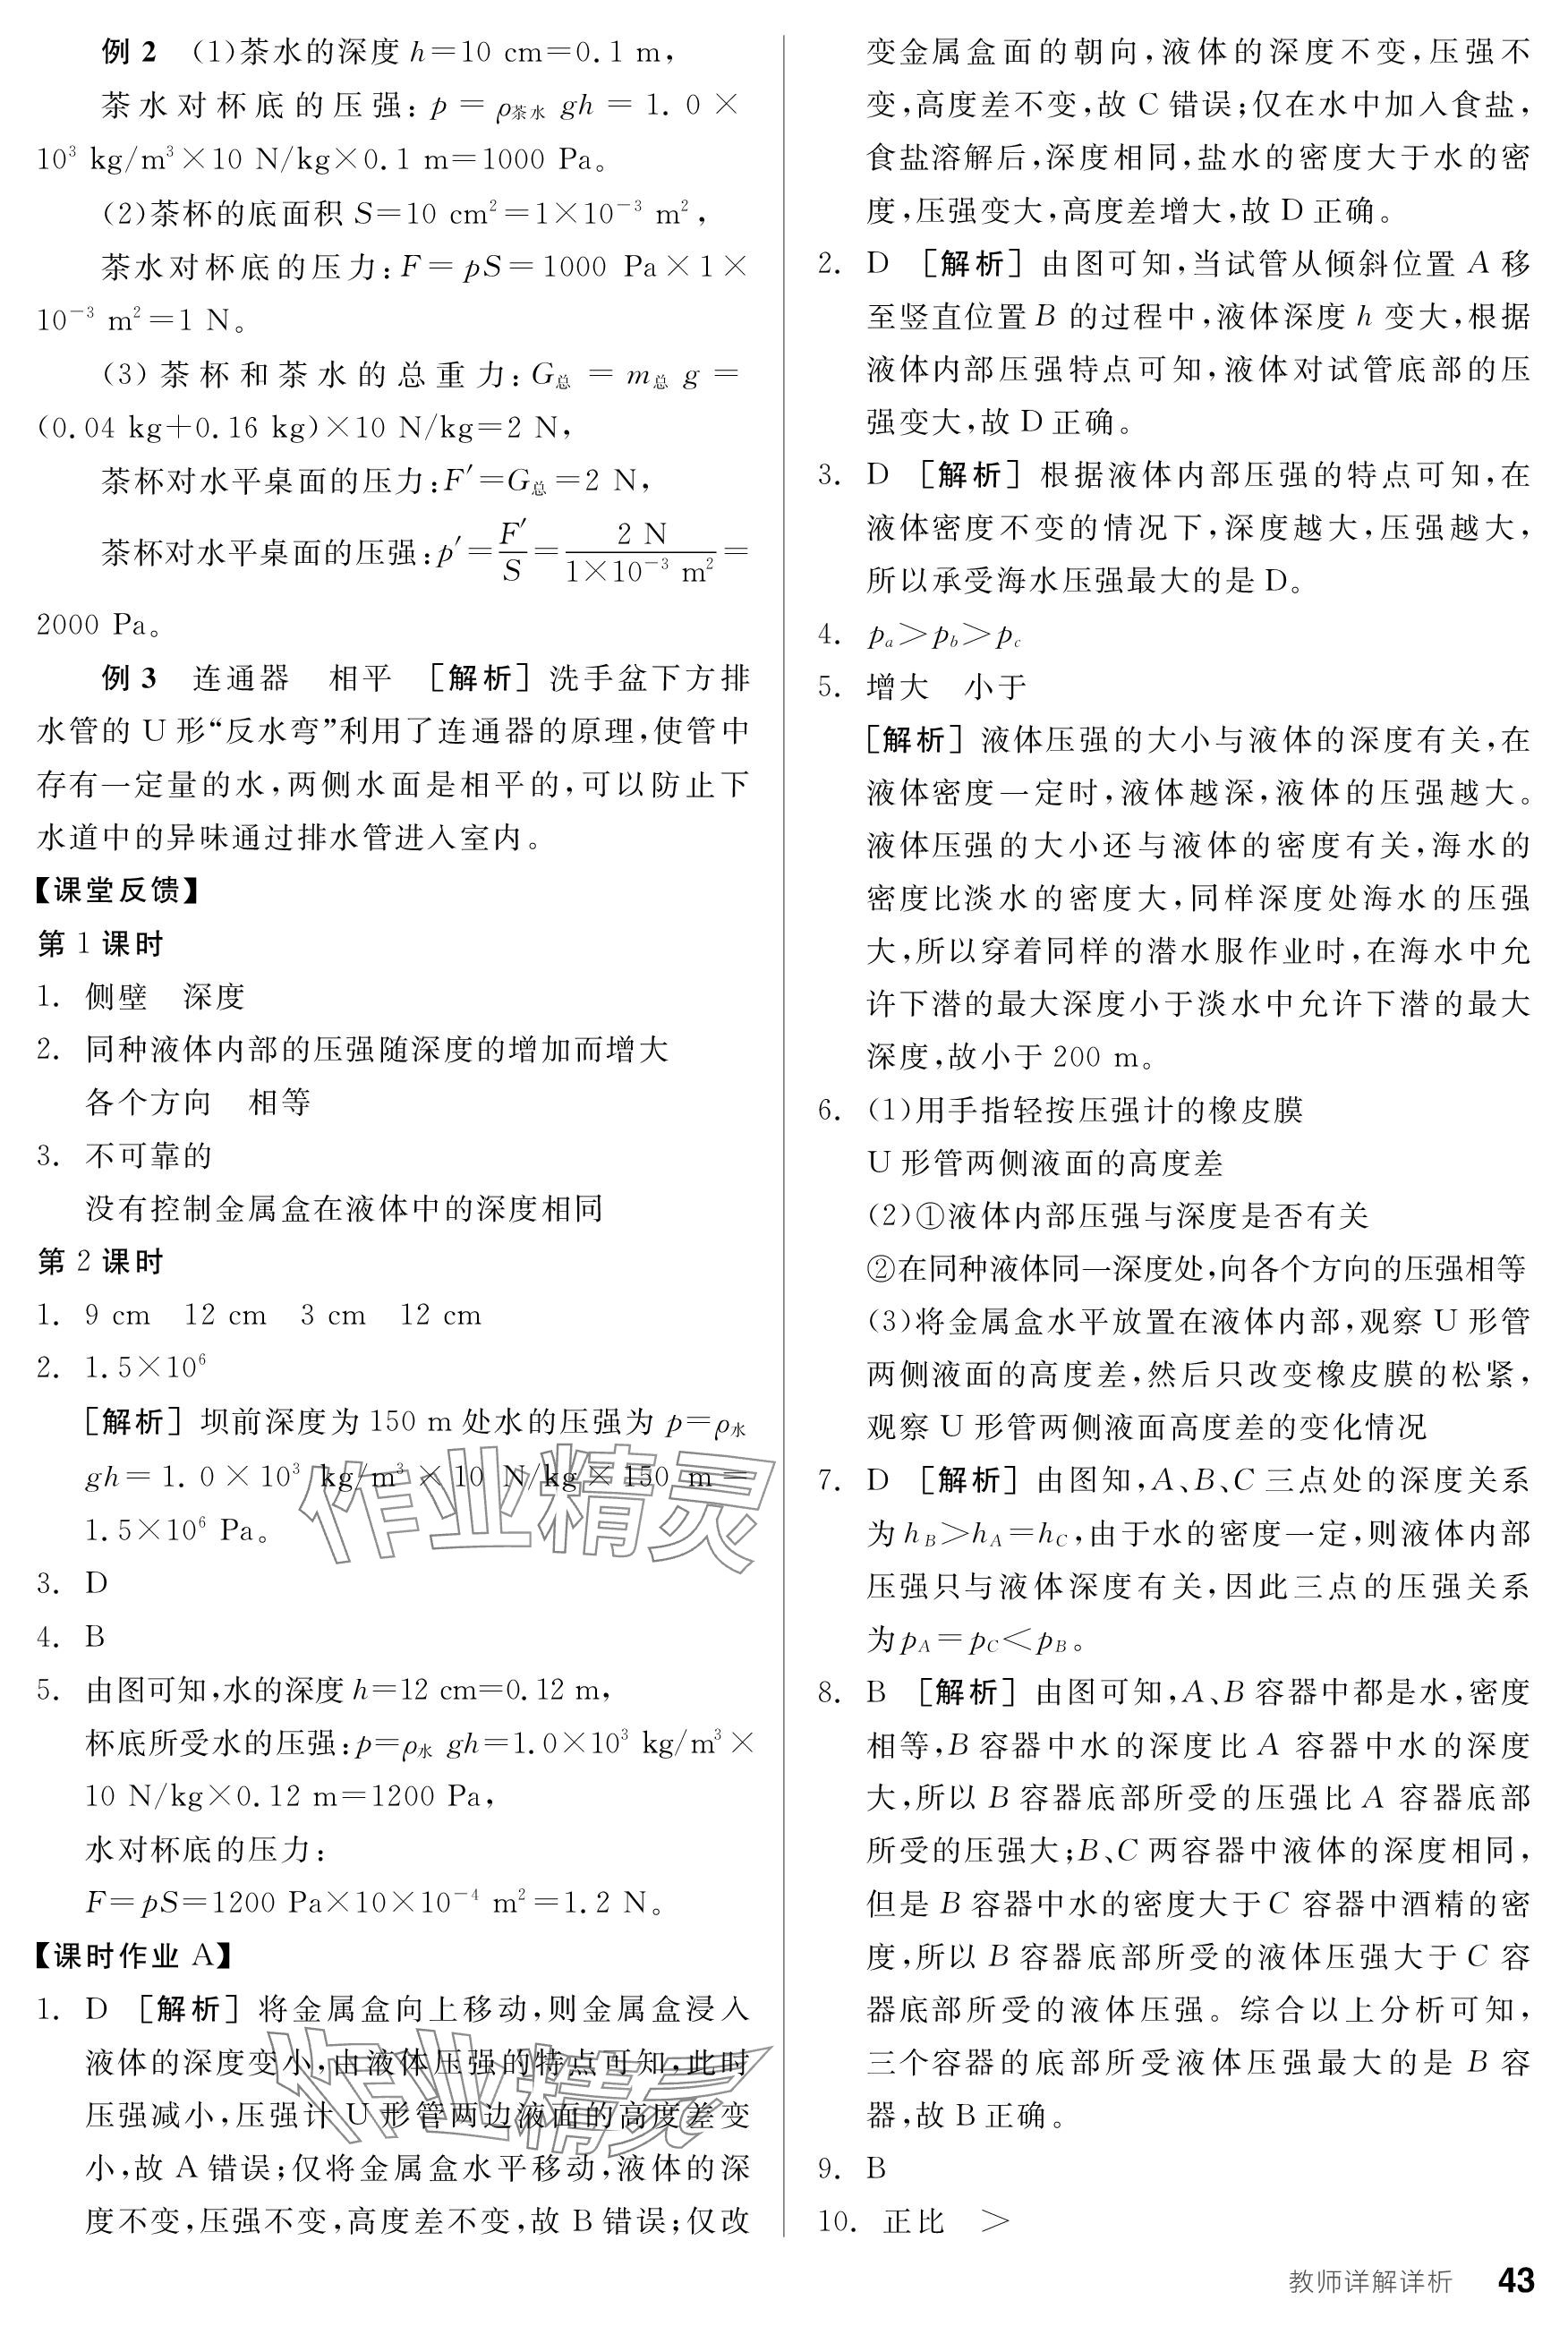 例2 (1)茶水的深度h=10 cm=0.1 m,
茶水对杯底的压强:p=ρ茶水 gh=1.0×
10³ kg/m³×10 N/kg×0.1 m=1000 Pa。
(2)茶杯的底面积S=10 cm²=1×10⁻³ m²,
茶水对杯底的压力:F=pS=1000 Pa×1×
10⁻³ m²=1 N。
(3)茶杯和茶水的总重力:G总=m总 g=
(0.04 kg+0.16 kg)×10 N/kg=2 N,
茶杯对水平桌面的压力:F′=G总=2 N,
茶杯对水平桌面的压强:p′=F′/S=2 N/(1×10⁻³ m²)=
2000 Pa。
例3 连通器 相平 [解析]洗手盆下方排
水管的U形“反水弯”利用了连通器的原理,使管中
存有一定量的水,两侧水面是相平的,可以防止下
水道中的异味通过排水管进入室内。
【课堂反馈】
第1课时
1. 侧壁 深度
2. 同种液体内部的压强随深度的增加而增大
各个方向 相等
3. 不可靠的
没有控制金属盒在液体中的深度相同
第2课时
1. 9 cm 12 cm 3 cm 12 cm
2. 1.5×10⁶
[解析]坝前深度为150 m处水的压强为p=ρ水
gh=1.0×10³ kg/m³×10 N/kg×150 m=
1.5×10⁶ Pa。
作业精灵
3. D
4. B
5. 由图可知,水的深度h=12 cm=0.12 m,
杯底所受水的压强:p=ρ水 gh=1.0×10³ kg/m³×
10 N/kg×0.12 m=1200 Pa,
水对杯底的压力:
F=pS=1200 Pa×10×10⁻⁴ m²=1.2 N。
【课时作业A】
1. D [解析]将金属盒向上移动,则金属盒浸入
液体的深度变小,由液体压强的特点可知,此时
压强减小,压强计U形管两边液面的高度差变
小,故A错误;仅将金属盒水平移动,液体的深
度不变,压强不变,高度差不变,故B错误;仅改
作业精灵
变金属盒面的朝向,液体的深度不变,压强不
变,高度差不变,故C错误;仅在水中加入食盐,
食盐溶解后,深度相同,盐水的密度大于水的密
度,压强变大,高度差增大,故D正确。
2. D [解析]由图可知,当试管从倾斜位置A移
至竖直位置B的过程中,液体深度h变大,根据
液体内部压强特点可知,液体对试管底部的压
强变大,故D正确。
3. D [解析]根据液体内部压强的特点可知,在
液体密度不变的情况下,深度越大,压强越大,
所以承受海水压强最大的是D。
4. pₐ>p_b>p_c
5. 增大 小于
[解析]液体压强的大小与液体的深度有关,在
液体密度一定时,液体越深,液体的压强越大。
液体压强的大小还与液体的密度有关,海水的
密度比淡水的密度大,同样深度处海水的压强
大,所以穿着同样的潜水服作业时,在海水中允
许下潜的最大深度小于淡水中允许下潜的最大
深度,故小于200 m。
6. (1)用手指轻按压强计的橡皮膜
U形管两侧液面的高度差
(2)①液体内部压强与深度是否有关
②在同种液体同一深度处,向各个方向的压强相等
(3)将金属盒水平放置在液体内部,观察U形管
两侧液面的高度差,然后只改变橡皮膜的松紧,
观察U形管两侧液面高度差的变化情况
7. D [解析]由图知,A、B、C三点处的深度关系
为h_B>h_A=h_C,由于水的密度一定,则液体内部
压强只与液体深度有关,因此三点的压强关系
为p_A=p_C<p_B。
8. B [解析]由图可知,A、B容器中都是水,密度
相等,B容器中水的深度比A容器中水的深度
大,所以B容器底部所受的压强比A容器底部
所受的压强大;B、C两容器中液体的深度相同,
但是B容器中水的密度大于C容器中酒精的密
度,所以B容器底部所受的液体压强大于C容
器底部所受的液体压强。综合以上分析可知,
三个容器的底部所受液体压强最大的是B容
器,故B正确。
9. B
10. 正比 >
教师详解详析 43